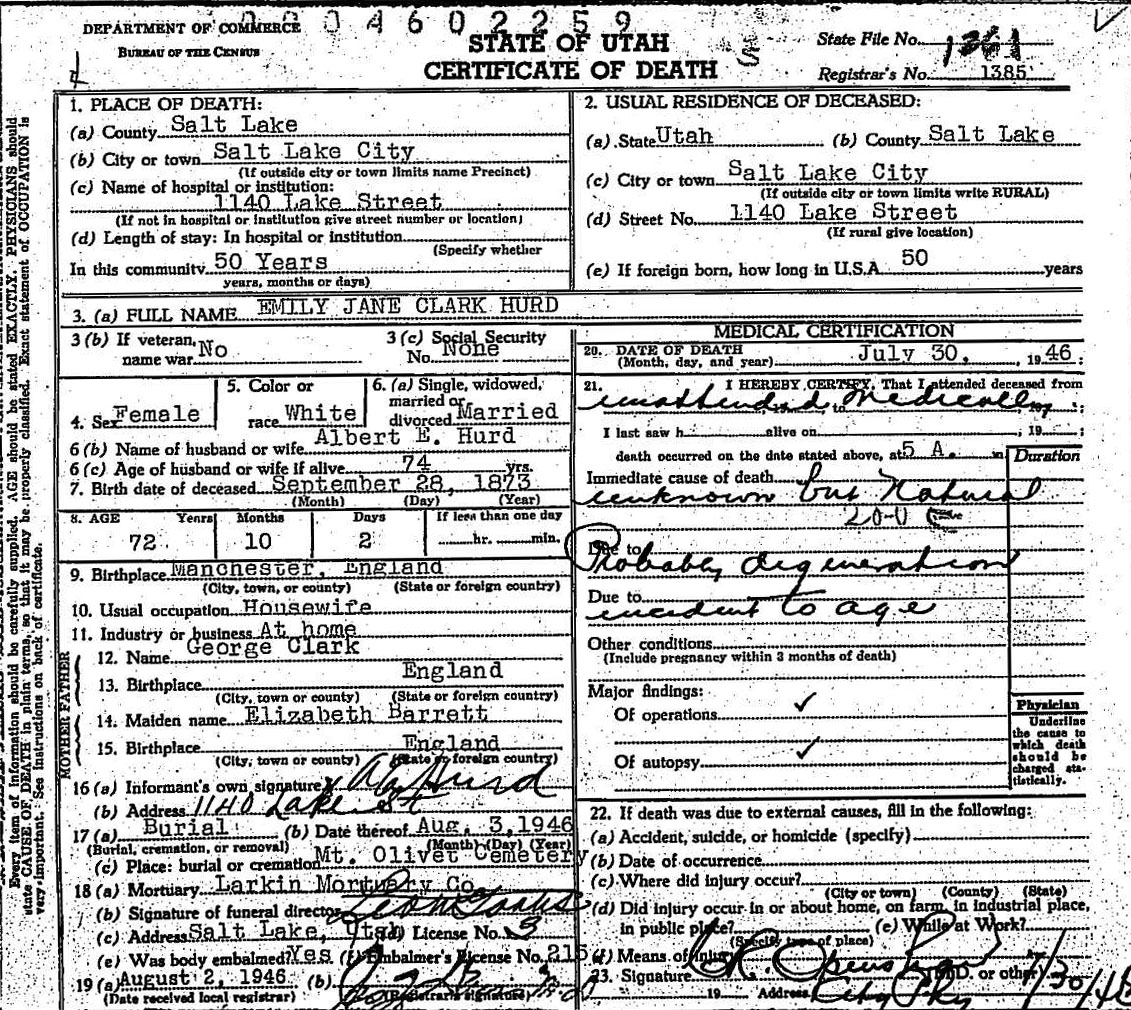 DEPARTMENT OF COMMERCE
BUREAU OF THE CENSUS
004602259
STATE OF UTAH
CERTIFICATE OF DEATH
State File No. 1361
Registrar's No. 1385
1. PLACE OF DEATH:
(a) County Salt Lake
(b) City or town Salt Lake City
(If outside city or town limits name Precinct)
(c) Name of hospital or institution:
1140 Lake Street
(If not in hospital or institution give street number or location)
(d) Length of stay: In hospital or institution
(Specify whether
In this community 50 Years
years, months or days)
2. USUAL RESIDENCE OF DECEASED:
(a) State Utah (b) County Salt Lake
(c) City or town Salt Lake City
(If outside city or town limits write RURAL)
(d) Street No. 1140 Lake Street
(If rural give location)
(e) If foreign born, how long in U.S.A. 50 years
3. (a) FULL NAME EMILY JANE CLARK HURD
3 (b) If veteran, name war No
3 (c) Social Security No. None
4. Sex Female
5. Color or race White
6. (a) Single, widowed, married or divorced Married
6 (b) Name of husband or wife Albert E. Hurd
6 (c) Age of husband or wife if alive 74 yrs.
7. Birth date of deceased September 28, 1873
(Month) (Day) (Year)
8. AGE Years Months Days If less than one day
72 10 2 hr. min.
9. Birthplace Manchester, England
(City, town, or county) (State or foreign country)
10. Usual occupation Housewife
11. Industry or business At home
FATHER
12. Name George Clark
13. Birthplace England
(City, town or county) (State or foreign country)
MOTHER
14. Maiden name Elizabeth Barrett
15. Birthplace England
(City, town or county) (State or foreign country)
16 (a) Informant's own signature x Hurd
(b) Address 1140 Lake St
17 (a) Burial (b) Date thereof Aug. 3, 1946
(Burial, cremation, or removal) (Month) (Day) (Year)
(c) Place: burial or cremation Mt. Olivet Cemetery
18 (a) Mortuary Larkin Mortuary Co
(b) Signature of funeral director
(c) Address Salt Lake, Utah (d) License No. 3
(e) Was body embalmed? Yes (f) Embalmer's License No. 215
19 (a) August 2, 1946 (b)
(Date received local registrar) (Registrar's signature)
MEDICAL CERTIFICATION
20. DATE OF DEATH
(Month, day, and year) July 30, 1946
21. I HEREBY CERTIFY, That I attended deceased from
unattended to Medically
I last saw h alive on ; 19 ;
death occurred on the date stated above, at 5 A. m
Duration
Immediate cause of death
unknown but Natural
200
Due to
Probably degeneration
Due to
incident to age
Other conditions
(Include pregnancy within 3 months of death)
Major findings:
Of operations ✓
Of autopsy ✓
Physician
Underline
the cause to
which death
should be
charged sta-
tistically.
22. If death was due to external causes, fill in the following:
(a) Accident, suicide, or homicide (specify)
(b) Date of occurrence
(c) Where did injury occur?
(City or town) (County) (State)
(d) Did injury occur in or about home, on farm, in industrial place,
in public place? (e) While at Work?
(Specify type of place)
(f) Means of injury
23. Signature (M.D. or other) 7/30/46
19 Address City Phy
Every item of information should be carefully supplied. AGE should be stated EXACTLY. PHYSICIANS should
state CAUSE OF DEATH in plain terms, so that it may be properly classified. Exact statement of OCCUPATION is
very important. See instructions on back of certificate.